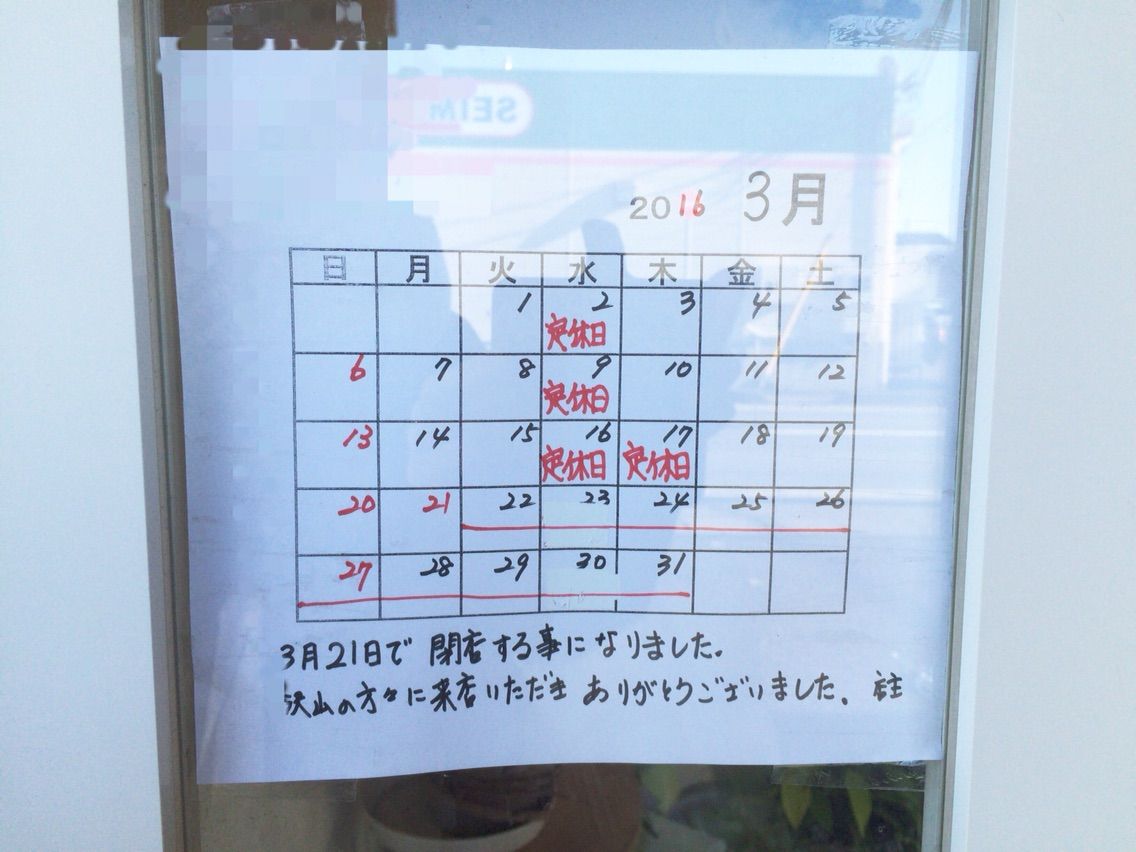 SEIM
2016 3月
日 月 火 水 木 金 土
1 2 3 4 5
定休日
6 7 8 9 10 11 12
定休日
13 14 15 16 17 18 19
定休日 定休日
20 21 22 23 24 25 26
27 28 29 30 31
3月21日で 閉店する事になりました。
沢山の方々に来店いただき ありがとうございました。 店主